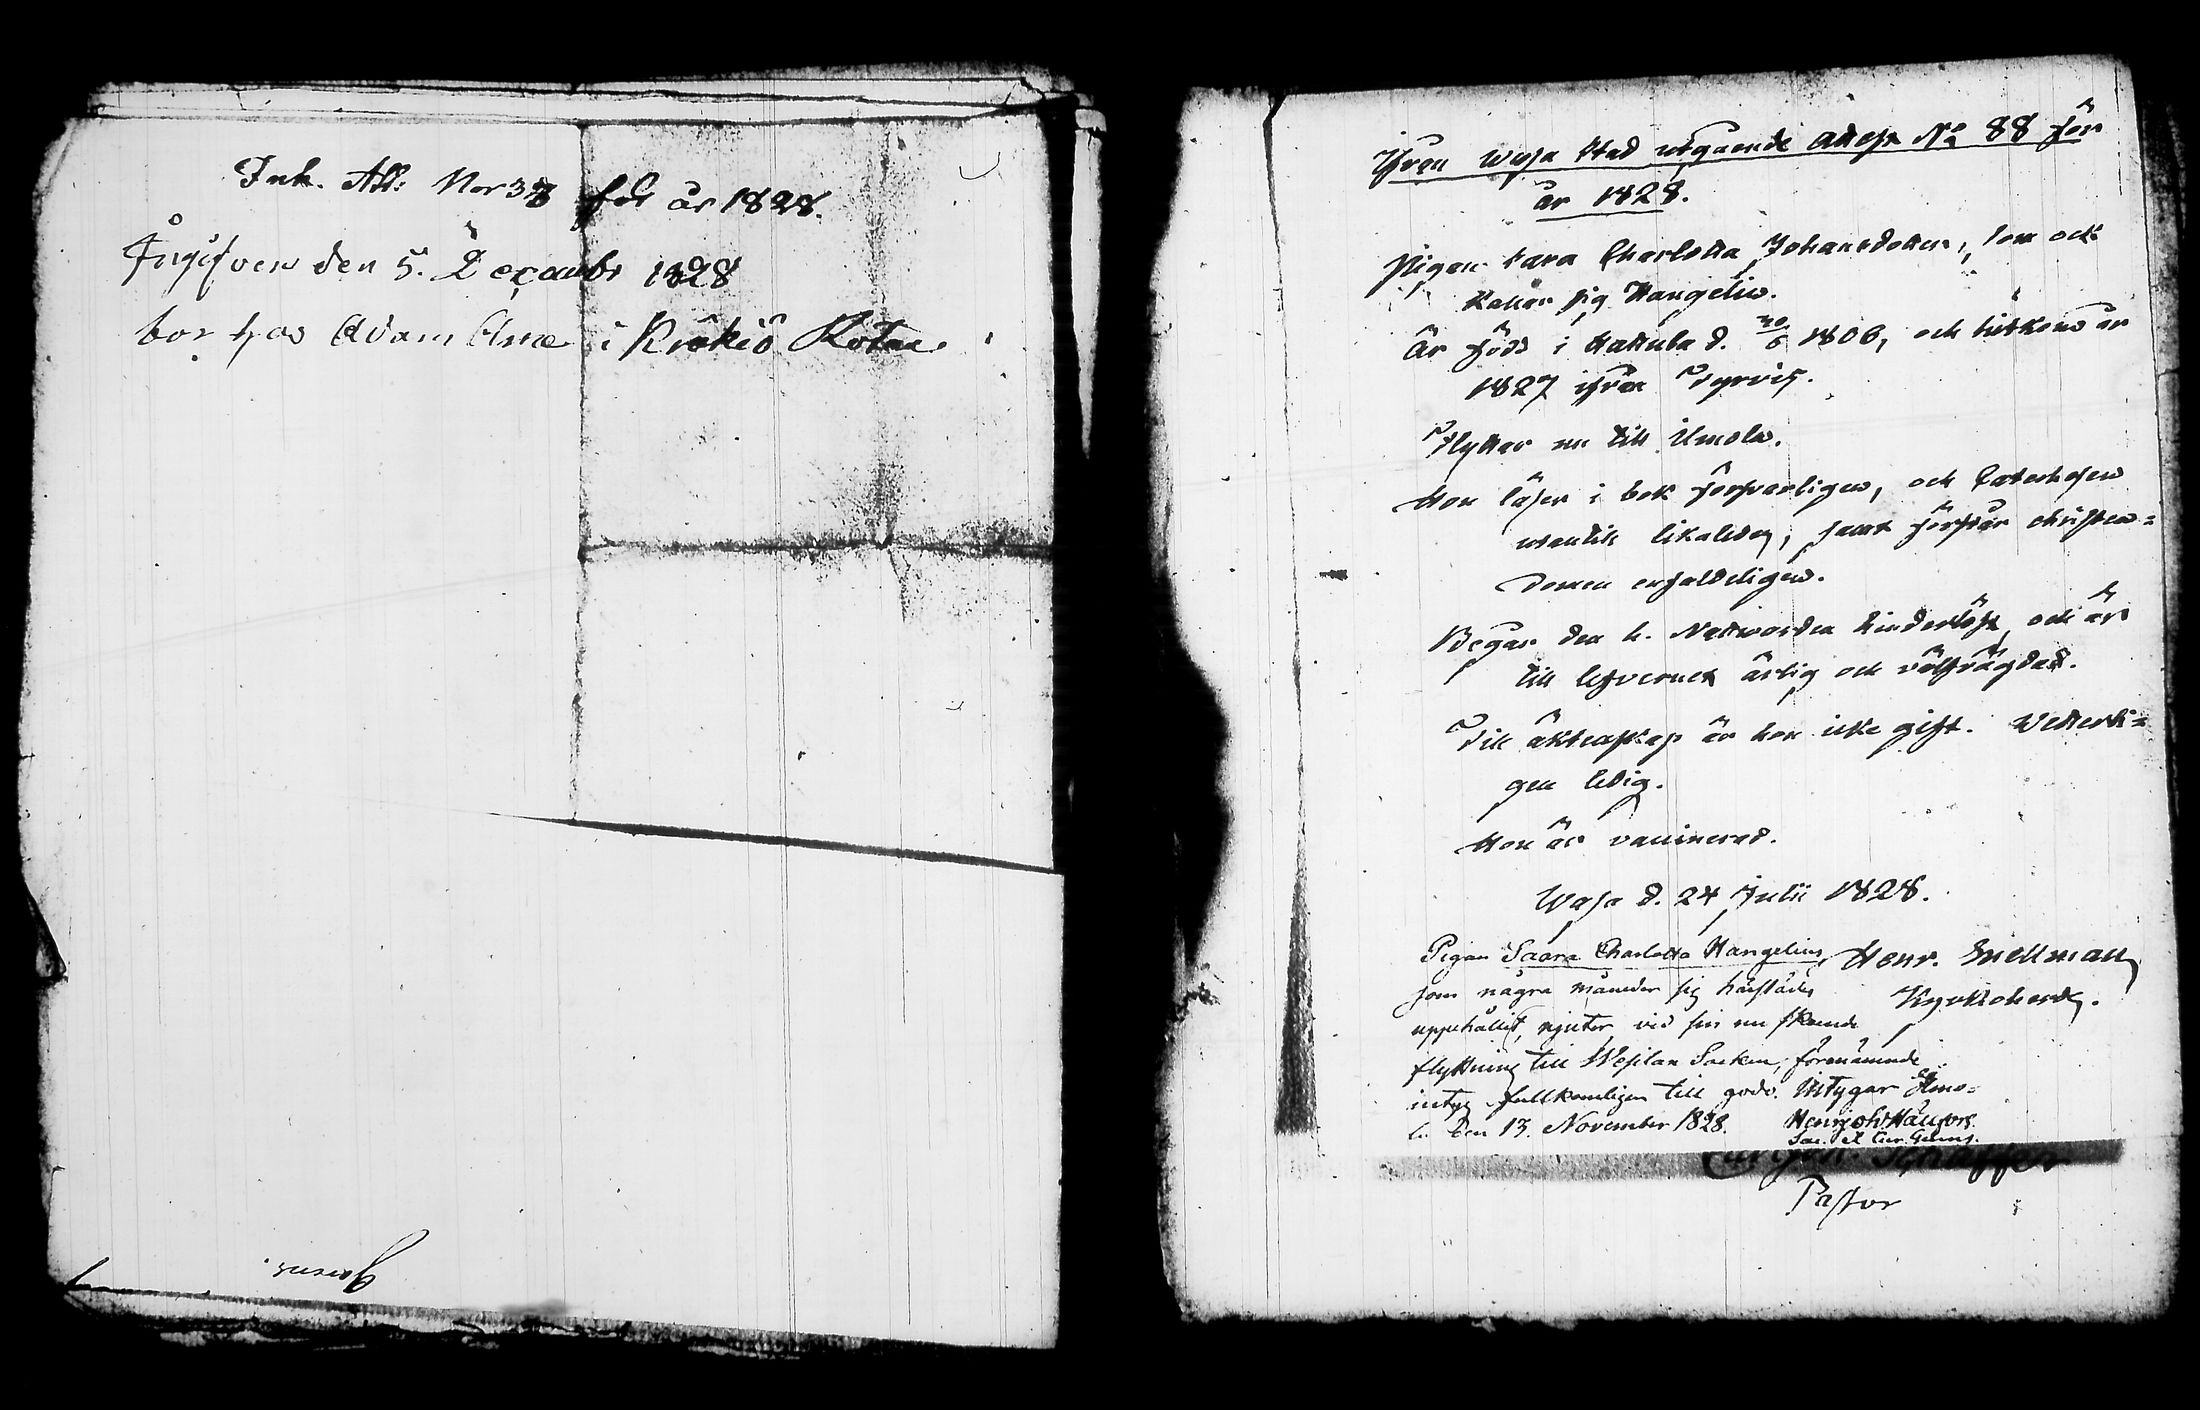 Ink. Att: Nor 38 för år 1828.
Ingifven den 5. Decembr 1828
bor hos Adam i Krekiö Rotan
ifrån Wasa Stad utgående attest No 88 för
år 1828.
Pigan Sara Charlotta Johansdotter, som ock
kallar sig Hangelin.
Är född i Kakola d. 30/6 1806, och hitkom år
1827 ifrån Tyrvis.
Flyttar nu till Ilmola.
Hon läser i bok försvarligen, och Catechesen
utantill likaledes, samt förstår christen=
domen enfaldeligen.
Begår den h. Nattvarden hinderlöst, och är
till lefvernet ärlig och välfrägdad.
Till äktenskap är hon icke gift. Vetterli=
gen ledig.
Hon är vaccinerad.
Wasa d. 24 Julii 1828.
Henr. Snellman
Kyrkoherde.
Pigan Saara Charlotta Hangelin,
som några månader sig härstädes
uppehållit, njuter vid sin nu skeende
flyttning till Wesilax Socken, förenämnde
intyg fullkomligen till godo. Intygar Ilmo=
la den 13. November 1828.
Pastor